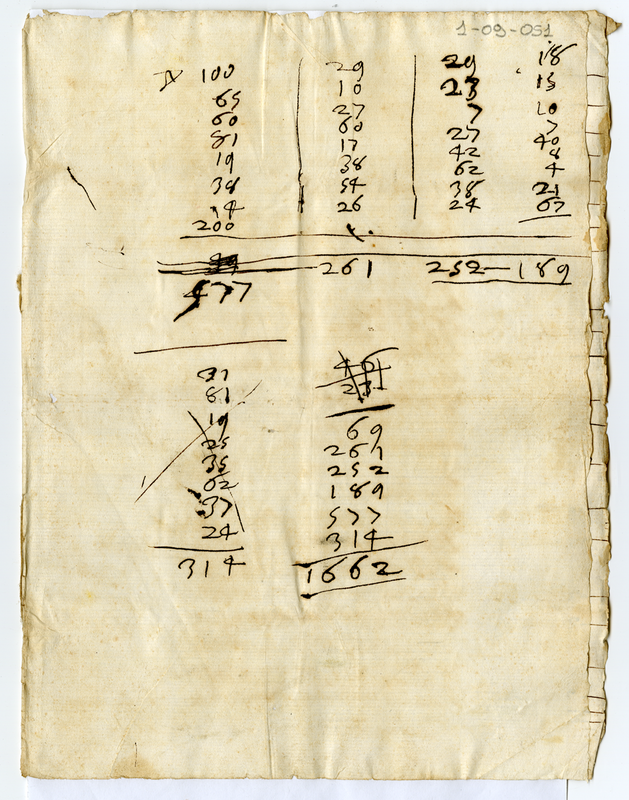 1-09-051
100
65
60
81
19
38
14
200
477
29
10
27
60
17
38
54
26
261
29
23
7
27
42
62
38
24
252
18
10
7
40
8
4
21
67
189
31
81
19
25
35
62
37
24
314
69
261
252
189
577
314
1662